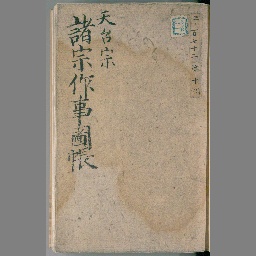 天台宗
諸宗作事圖帳